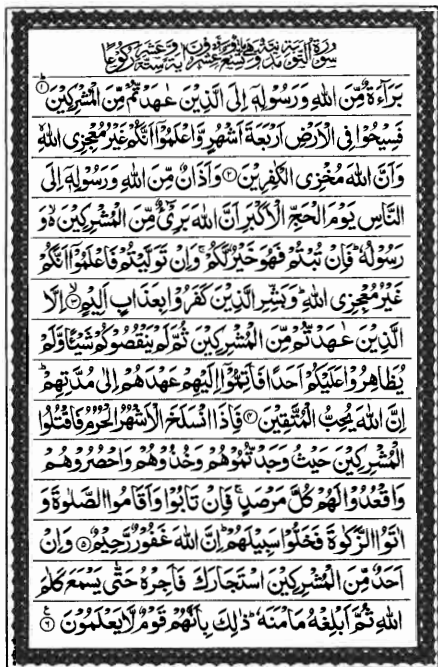 سورة التوبة مدنية وهى مائة وتسع وعشرون اية وستة عشر ركوعا
بَرَآءَةٌ مِّنَ اللهِ وَرَسُوْلِهٖٓ اِلَى الَّذِيْنَ عٰهَدْتُّمْ مِّنَ الْمُشْرِكِيْنَ ۱
فَسِيْحُوْا فِى الْاَرْضِ اَرْبَعَةَ اَشْهُرٍ وَّاعْلَمُوْٓا اَنَّكُمْ غَيْرُ مُعْجِزِى اللهِ
وَاَنَّ اللهَ مُخْزِى الْكٰفِرِيْنَ ۲ وَاَذَانٌ مِّنَ اللهِ وَرَسُوْلِهٖٓ اِلَى
النَّاسِ يَوْمَ الْحَجِّ الْاَكْبَرِ اَنَّ اللهَ بَرِیْٓءٌ مِّنَ الْمُشْرِكِيْنَ ۙ وَ
رَسُوْلُهٗ ؕ فَاِنْ تُبْتُمْ فَهُوَ خَيْرٌ لَّكُمْ ۚ وَاِنْ تَوَلَّيْتُمْ فَاعْلَمُوْٓا اَنَّكُمْ
غَيْرُ مُعْجِزِى اللهِ ؕ وَبَشِّرِ الَّذِيْنَ كَفَرُوْا بِعَذَابٍ اَلِيْمٍ ۳ اِلَّا
الَّذِيْنَ عٰهَدْتُّمْ مِّنَ الْمُشْرِكِيْنَ ثُمَّ لَمْ يَنْقُصُوْكُمْ شَيْئًا وَّلَمْ
يُظَاهِرُوْا عَلَيْكُمْ اَحَدًا فَاَتِمُّوْٓا اِلَيْهِمْ عَهْدَهُمْ اِلٰى مُدَّتِهِمْ ؕ
اِنَّ اللهَ يُحِبُّ الْمُتَّقِيْنَ ۴ فَاِذَا انْسَلَخَ الْاَشْهُرُ الْحُرُمُ فَاقْتُلُوا
الْمُشْرِكِيْنَ حَيْثُ وَجَدْتُّمُوْهُمْ وَخُذُوْهُمْ وَاحْصُرُوْهُمْ
وَاقْعُدُوْا لَهُمْ كُلَّ مَرْصَدٍ ۚ فَاِنْ تَابُوْا وَاَقَامُوا الصَّلٰوةَ وَ
اٰتَوُا الزَّكٰوةَ فَخَلُّوْا سَبِيْلَهُمْ ؕ اِنَّ اللهَ غَفُوْرٌ رَّحِيْمٌ ۵ وَاِنْ
اَحَدٌ مِّنَ الْمُشْرِكِيْنَ اسْتَجَارَكَ فَاَجِرْهُ حَتّٰى يَسْمَعَ كَلٰمَ
اللهِ ثُمَّ اَبْلِغْهُ مَاْمَنَهٗ ؕ ذٰلِكَ بِاَنَّهُمْ قَوْمٌ لَّا يَعْلَمُوْنَ ۶ ع